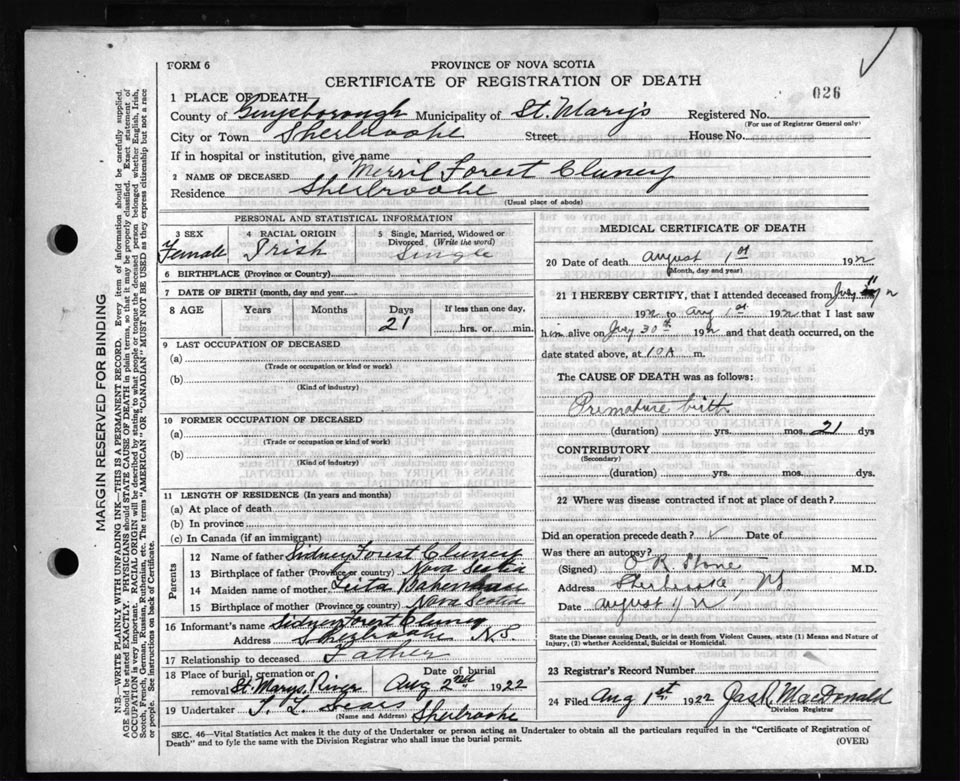 FORM 6
PROVINCE OF NOVA SCOTIA
CERTIFICATE OF REGISTRATION OF DEATH
026
1 PLACE OF DEATH
County of Guysborough Municipality of St. Mary's Registered No.
(For use of Registrar General only)
City or Town Sherbrooke Street House No.
If in hospital or institution, give name
2 NAME OF DECEASED Merril Forest Cluney
Residence Sherbrooke
(Usual place of abode)
PERSONAL AND STATISTICAL INFORMATION
3 SEX 4 RACIAL ORIGIN 5 Single, Married, Widowed or Divorced, (Write the word)
Female Irish Single
6 BIRTHPLACE (Province or Country)
7 DATE OF BIRTH (month, day and year)
8 AGE Years Months Days If less than one day,
21 hrs. or min.
9 LAST OCCUPATION OF DECEASED
(a)
(Trade or occupation or kind or work)
(b)
(Kind of industry)
10 FORMER OCCUPATION OF DECEASED
(a)
(Trade or occupation or kind of work)
(b)
(Kind of industry)
11 LENGTH OF RESIDENCE (In years and months)
(a) At place of death
(b) In province
(c) In Canada (if an immigrant)
Parents
12 Name of father Sidney Forest Cluney
13 Birthplace of father (Province or country) Nova Scotia
14 Maiden name of mother
15 Birthplace of mother (Province or country) Nova Scotia
16 Informant's name Sidney Forest Cluney
Address Sherbrooke NS
17 Relationship to deceased Father
18 Place of burial, cremation or removal St. Marys River Date of burial Aug 2nd 1922
19 Undertaker Sears Sherbrooke
(Name and Address)
MEDICAL CERTIFICATE OF DEATH
20 Date of death August 1st 192
(Month, day and year)
21 I HEREBY CERTIFY, that I attended deceased from
192 to Aug 1st 192 that I last saw
him alive on July 30th 192 and that death occurred, on the
date stated above, at m.
The CAUSE OF DEATH was as follows:
Premature birth
(duration) yrs. mos. 21 dys
CONTRIBUTORY
(Secondary)
(duration) yrs. mos. dys.
22 Where was disease contracted if not at place of death?
Did an operation precede death? Date of
Was there an autopsy?
(Signed) M.D.
Address Sherbrooke NS
Date August
State the Disease causing Death, or in death from Violent Causes, state (1) Means and Nature of
Injury, (2) whether Accidental, Suicidal or Homicidal.
23 Registrar's Record Number
24 Filed Aug 1st 1922 Jas. R. MacDonald
Division Registrar
SEC. 46—Vital Statistics Act makes it the duty of the Undertaker or person acting as Undertaker to obtain all the particulars required in the "Certificate of Registration of
Death" and to fyle the same with the Division Registrar who shall issue the burial permit.
(OVER)
MARGIN RESERVED FOR BINDING
N.B.—WRITE PLAINLY WITH UNFADING INK—THIS IS A PERMANENT RECORD. Every item of information should be carefully supplied.
AGE should be stated EXACTLY. PHYSICIANS should STATE CAUSE OF DEATH in plain terms, so that it may be properly classified. Exact statement of
OCCUPATION is very important. RACIAL ORIGIN will be described by stating to what people or tongue the deceased person belonged whether English, Irish,
Scotch, French, German, Russian, Ruthenian, etc. The terms "AMERICAN" OR "CANADIAN" MUST NOT BE USED as they express citizenship but not a race
or people. See instructions on back of Certificate.